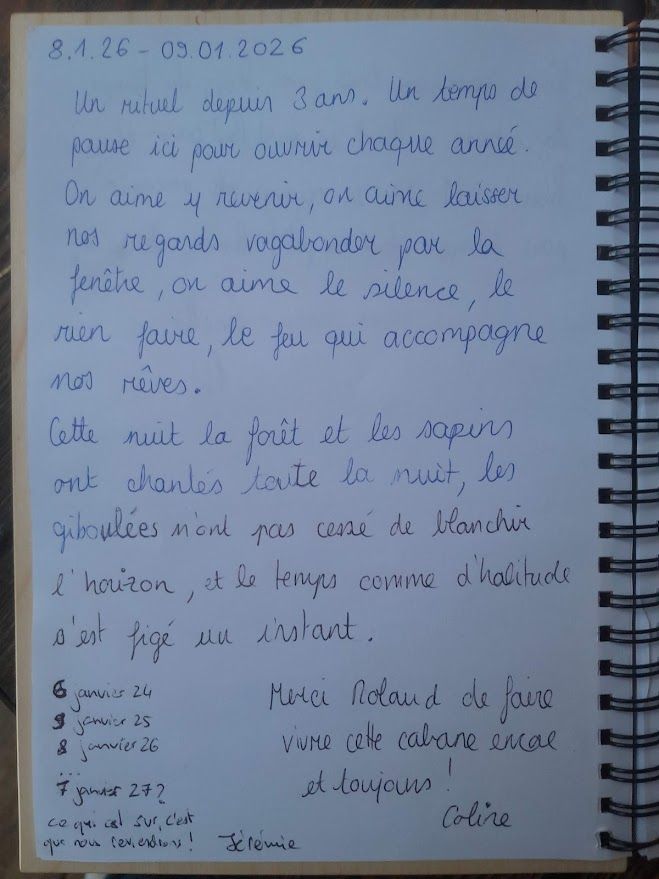 8.1.26 - 09.01.2026
Un rituel depuis 3 ans. Un temps de
pause ici pour ouvrir chaque année.
On aime y revenir, on aime laisser
nos regards vagabonder par la
fenêtre, on aime le silence, le
rien faire, le feu qui accompagne
nos rêves.
Cette nuit la forêt et les sapins
ont chantés toute la nuit, les
giboulées n'ont pas cessé de blanchir
l'horizon, et le temps comme d'habitude
s'est figé un instant.
6 janvier 24
9 janvier 25
8 janvier 26
...
7 janvier 27?
ce qui est sur, c'est
que nous reviendrons!
Jérémie
Merci Roland de faire
vivre cette cabane encore
et toujours!
Coline